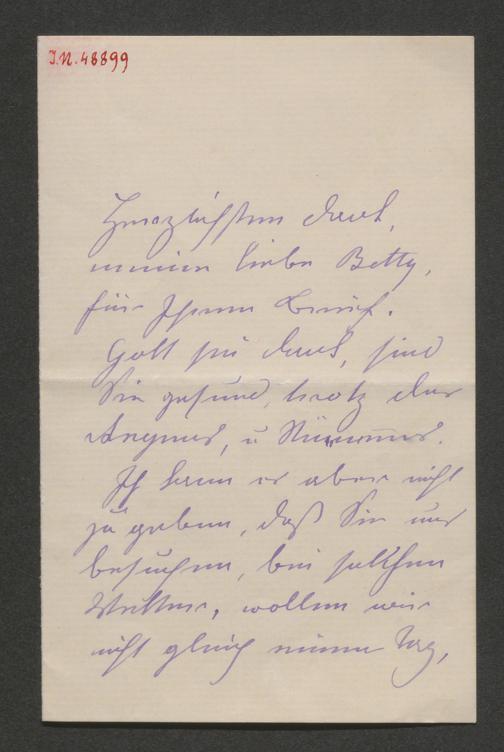 I.N. 48899
Herzlichsten Dank,
meine liebe Betty,
für Ihren Brief.
Gott sei Dank, sind
Sie gesund, trotz des
Regens, u Sturmes.
Ich kann es aber nicht
zu geben, daß Sie uns
besuchen, bei solchem
Wetter, wollen wir
nicht gleich einen Tag,